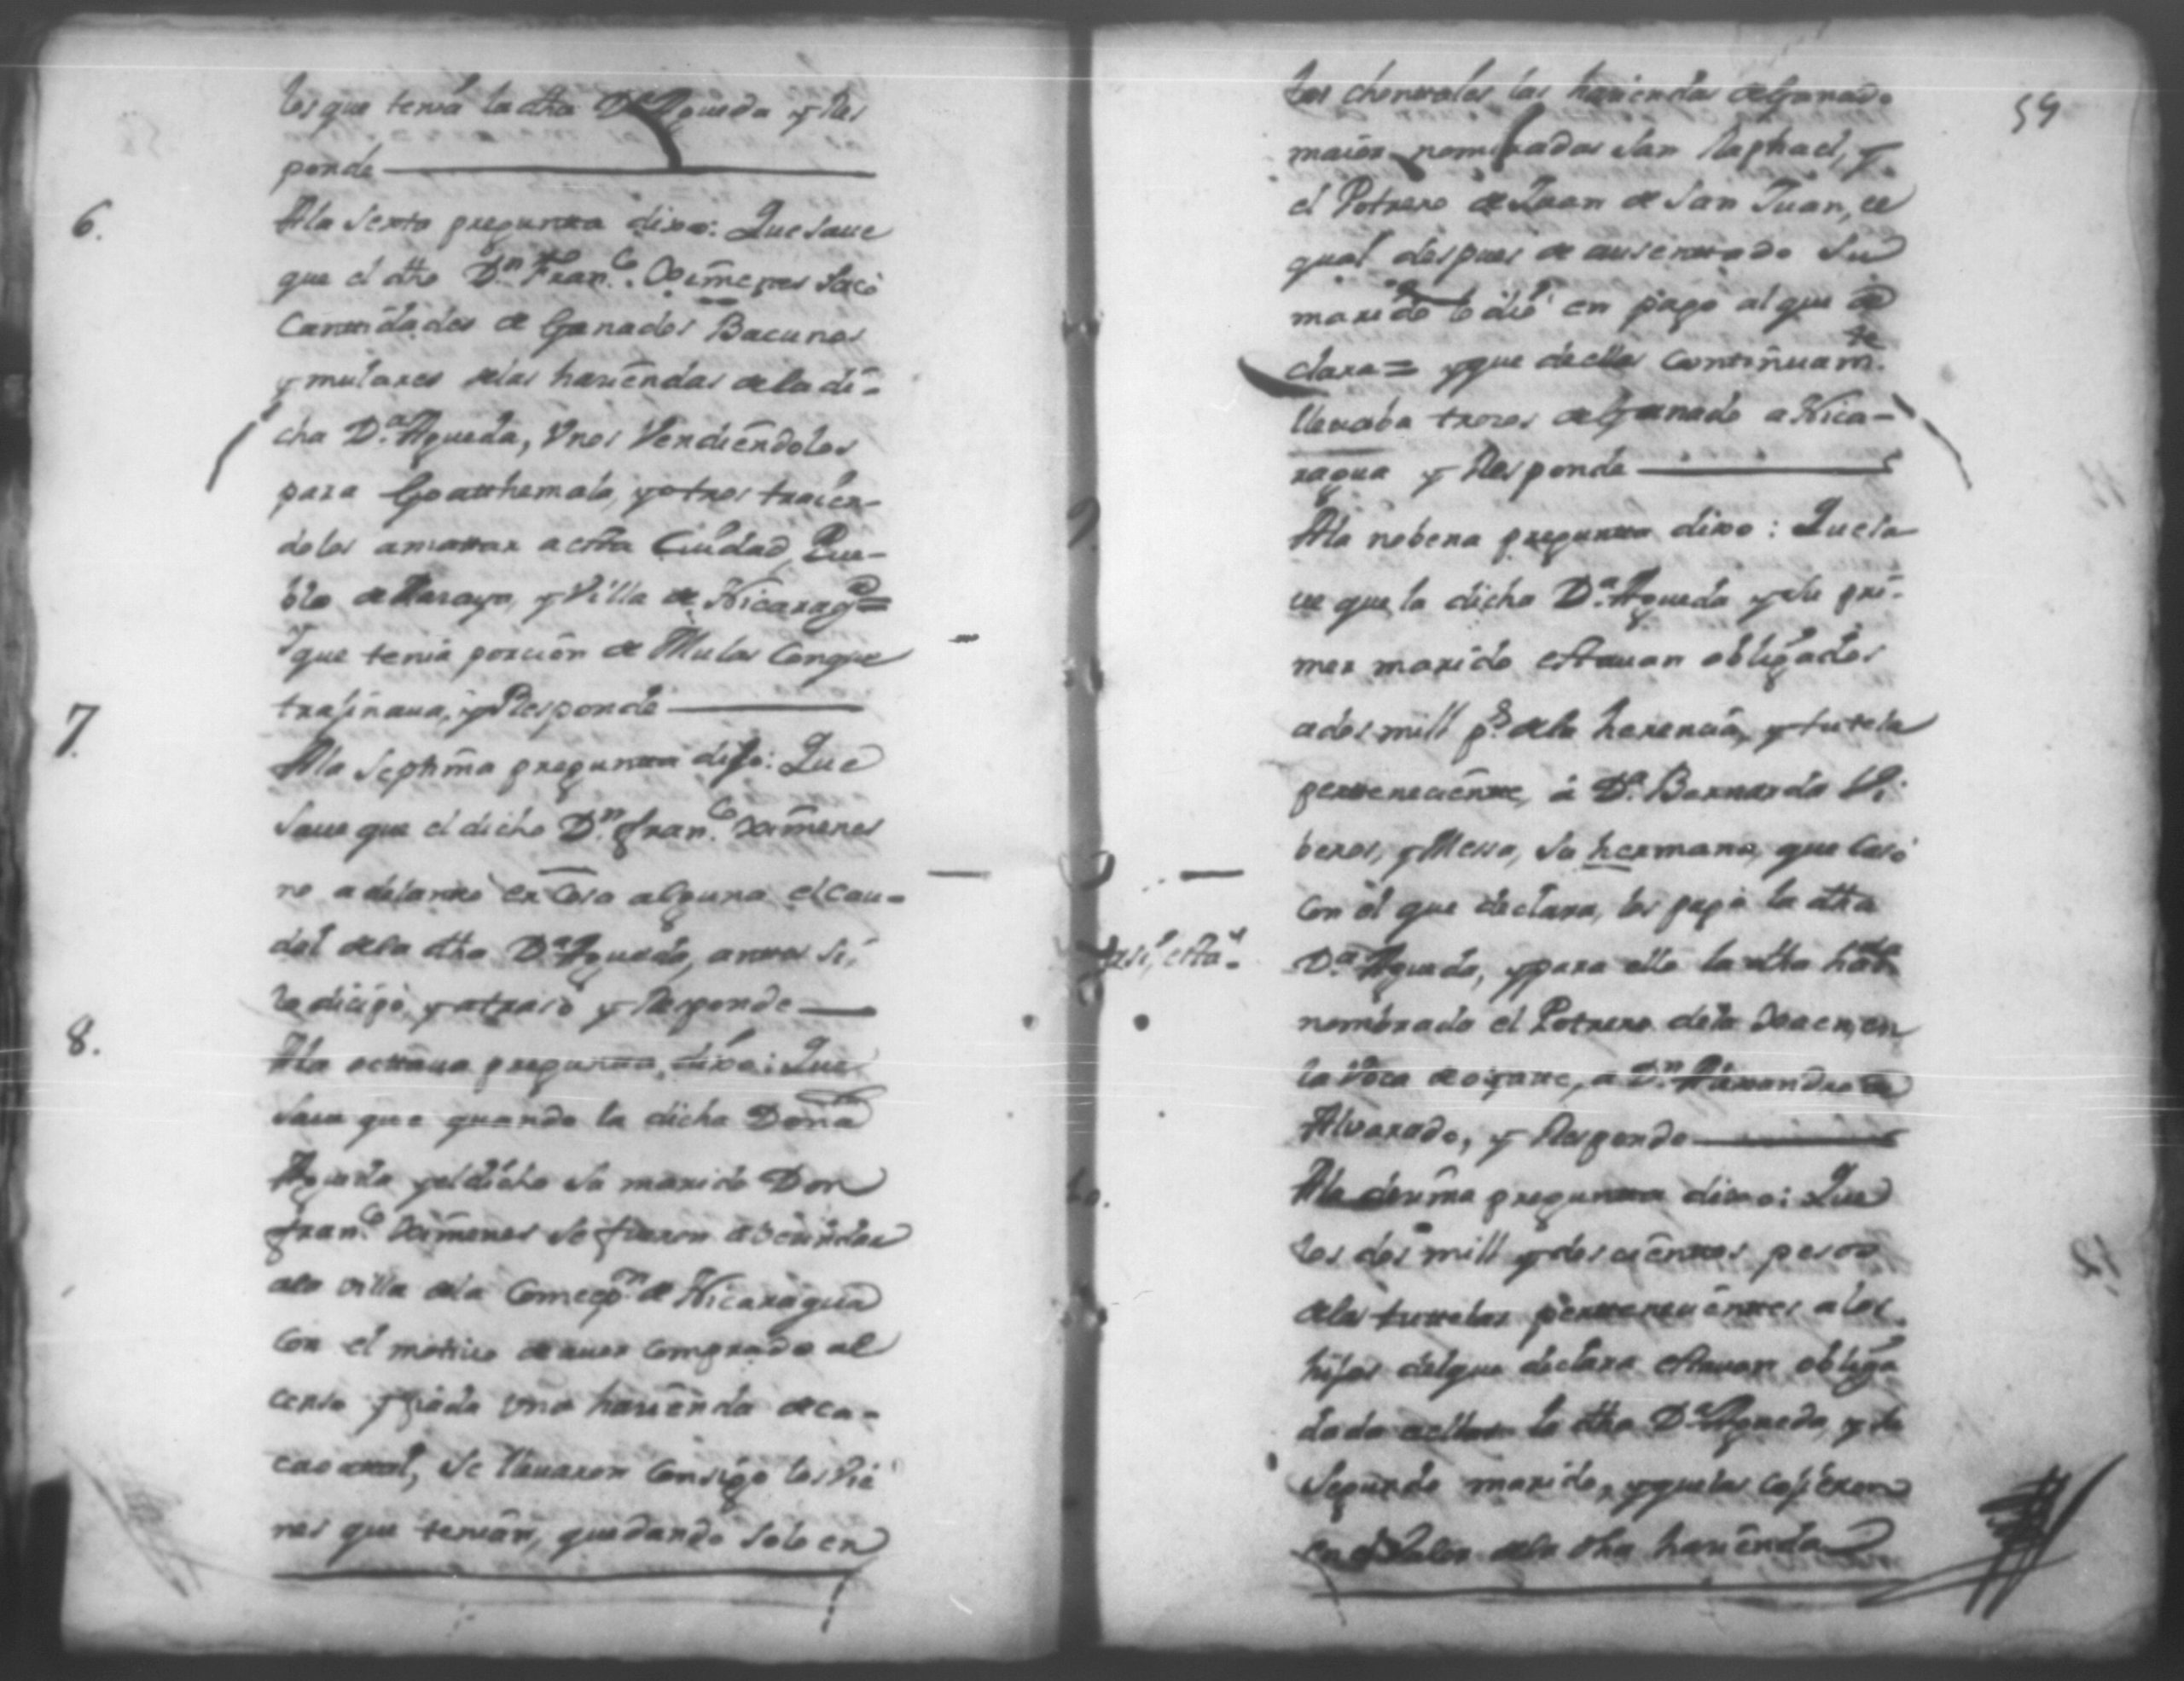 los que tenia la dha D.ª Agueda y Res
ponde
6.
Ala Sexta pregunta dixo: Que save
que el dho D.n Fran.co Ximenes sacó
Cantidades de Ganados Bacunos
y mulares delas haziendas dela di-
cha D.ª Agueda, Unos Vendiendolos
para Goathemala, y otros traien-
dolos a matar a esta Ciudad, Pue-
blo de y Villa de Nicarag.a=
y que tenia porcion de Mulas Conque
trajinava, y Responde
7.
Ala Septima pregunta dijo: Que
save que el dicho D.n Fran.co Ximenes
no adelantó en Cosa alguna el cau-
dal dela dha D.ª Agueda, antes si,
lo dicipó y atrasó y Responde
8.
Ala octava pregunta, dixo: Que
save que quando la dicha Doña
Agueda y el dicho su marido Don
Fran.co Ximenes se fueron a vecindar
ala villa dela Comcepn de Nicaragua
con el motivo de aver comprado al
censo y fiada una hazienda de ca-
caotal, se llevaron Consigo los vie
nes que tenian, quedando solo en
59
los chontales las haziendas de Ganado
maior nominadas San Raphael, y
el Potrero de Juan de San Juan, el
qual despues de ausentado su
marido lo dió en pago al que de
clara= y que de ellas Continuam.te
llevaba trozos de Ganado a Nica-
ragua y Responde
9.
Ala nobena pregunta dixo: Que sa
ve que la dicha D.ª Agueda y su pri-
mer marido estavan obligados
a dos mill p.s dela herencia, y tutela
perteneciente, á D.ª Barnarda Vi
beros, y Messa, su hermana, que Casó
con el que declara, los pagó la dha
Asi, esta
D.ª Agueda, y para ello la dha
nombrado el Potrero dela en
la Voca de oyate, a D.n Alexandro de
Alvarado, y Responde
10.
Ala dezima pregunta dixo: Que
los dos mill y doscientos pesos
delas tutelas pertenecientes a los
hijos del que declara estavan obliga
dada a ellos la dha D.ª Agueda, y su
Segundo marido, y que las cojieron
en el valor dela dha hazienda